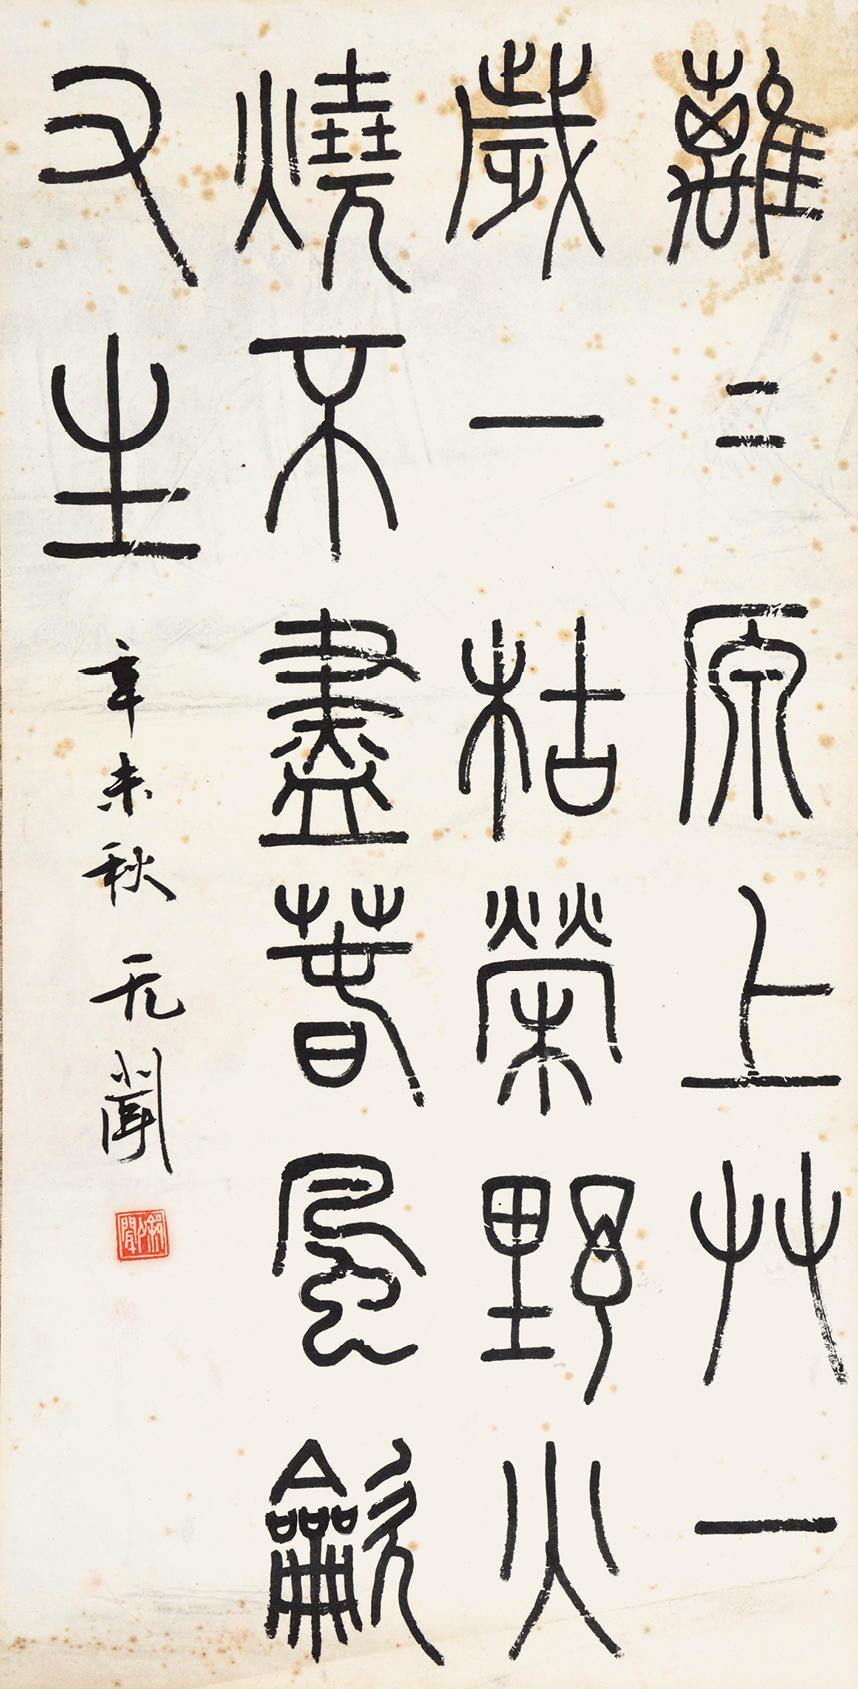 離〻原上艸一
歲一枯榮野火
燒不盡春風龡
又生
辛未秋 无聞